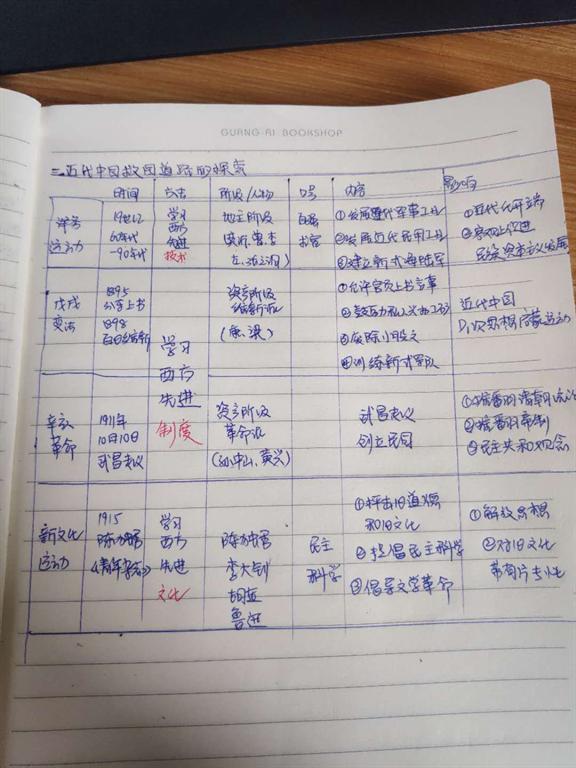 GUANG RI BOOKSHOP
三、近代中国救国道路的探索
时间 方式 阶级/人物 口号 内容 影响
洋务运动
19世纪
60年代
-90年代
学习
西方
先进
技术
地主阶级
自强
①发展近代军事工业
②发展近代民用工业
③建立新式海陆军
①近代化开端
②客观上促进
民族资本主义发展
戊戌
变法
1895
公车上书
1898
百日维新
学习
西方
先进
制度
资产阶级
维新派
(康、梁)
①允许官员上书言事
③废除八股文
④训练新式军队
近代中国
思想启蒙运动
辛亥
革命
1911年
10月10日
武昌起义
资产阶级
革命派
(孙中山、黄兴)
武昌起义
创立民国
①推翻清朝统治
②推翻帝制
③民主共和观念
新文化
运动
1915
陈独秀
《青年杂志》
学习
西方
先进
文化
陈独秀
李大钊
胡适
鲁迅
民主
科学
①抨击旧道德
和旧文化
②提倡民主科学
③倡导文学革命
①解放思想
②对旧文化
带有片面性